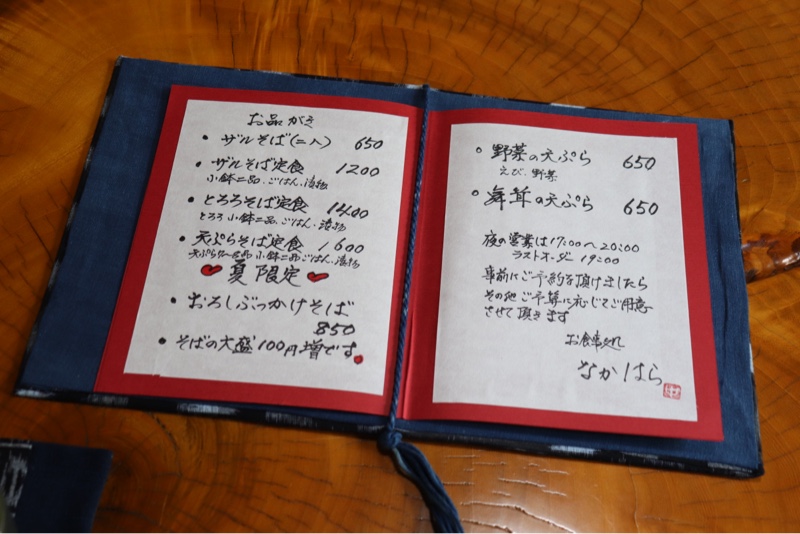 お品がき
・ザルそば(二人) 650
・ザルそば定食 1200
小鉢二品、ごはん、漬物
・とろろそば定食 1400
とろろ 小鉢二品、ごはん、漬物
・天ぷらそば定食 1600
小鉢二品 ごはん、漬物
夏限定
・おろしぶっかけそば
850
・そばの大盛100円増です。
・野菜の天ぷら 650
えび、野菜
・舞茸の天ぷら 650
夜の営業は17:00〜20:00
ラストオーダー 19:00
事前にご予約を頂けましたら
その他ご予算に応じてご用意
させて頂きます
お食事処
なかはら